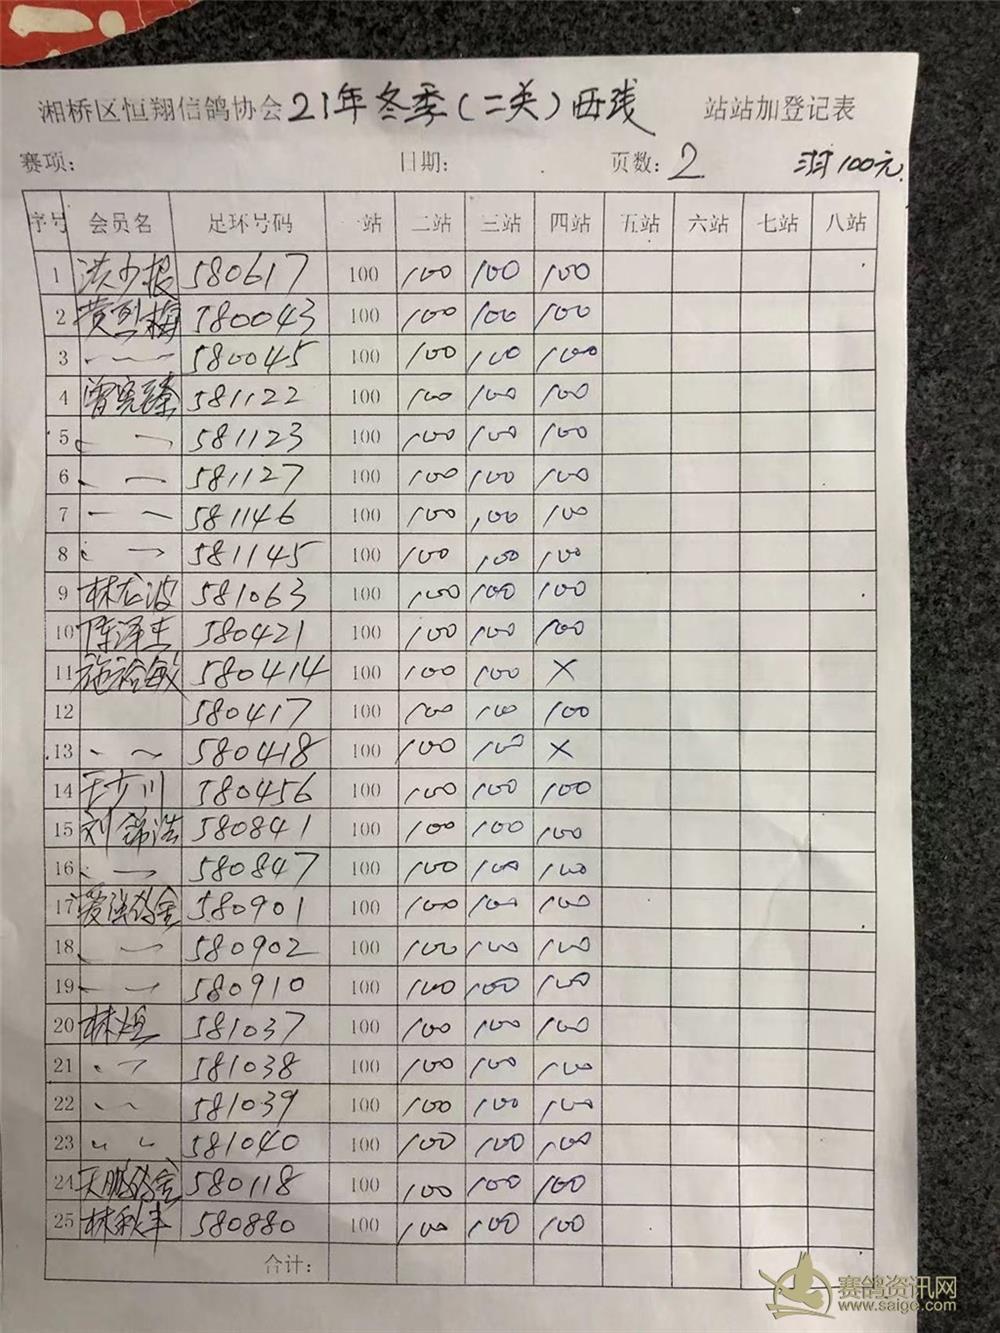 湘桥区恒翔信鸽协会21年冬季(二关)西线 站站加登记表
赛项: 日期: 页数: 2 100元
序号 会员名 足环号码 一站 二站 三站 四站 五站 六站 七站 八站
1 洪少根 580617 100 100 100 100
2 黄烈梅 580043 100 100 100 100
3 580045 100 100 100 100
4 曾宪臻 581122 100 100 100 100
5 581123 100 100 100 100
6 581127 100 100 100 100
7 581146 100 100 100 100
8 581145 100 100 100 100
9 林龙波 581063 100 100 100 100
10 陈泽生 580421 100 100 100 100
11 施裕敏 580414 100 100 100 ×
12 580417 100 100 100 100
13 580418 100 100 100 ×
14 王少川 580456 100 100 100 100
15 刘锦浩 580841 100 100 100 100
16 580847 100 100 100 100
17 580901 100 100 100 100
18 580902 100 100 100 100
19 580910 100 100 100 100
20 林烜 581037 100 100 100 100
21 581038 100 100 100 100
22 581039 100 100 100 100
23 581040 100 100 100 100
24 天鹏鸽舍 580118 100 100 100 100
25 林秋丰 580880 100 100 100 100
合计:
赛鸽资讯网
www.saige.com